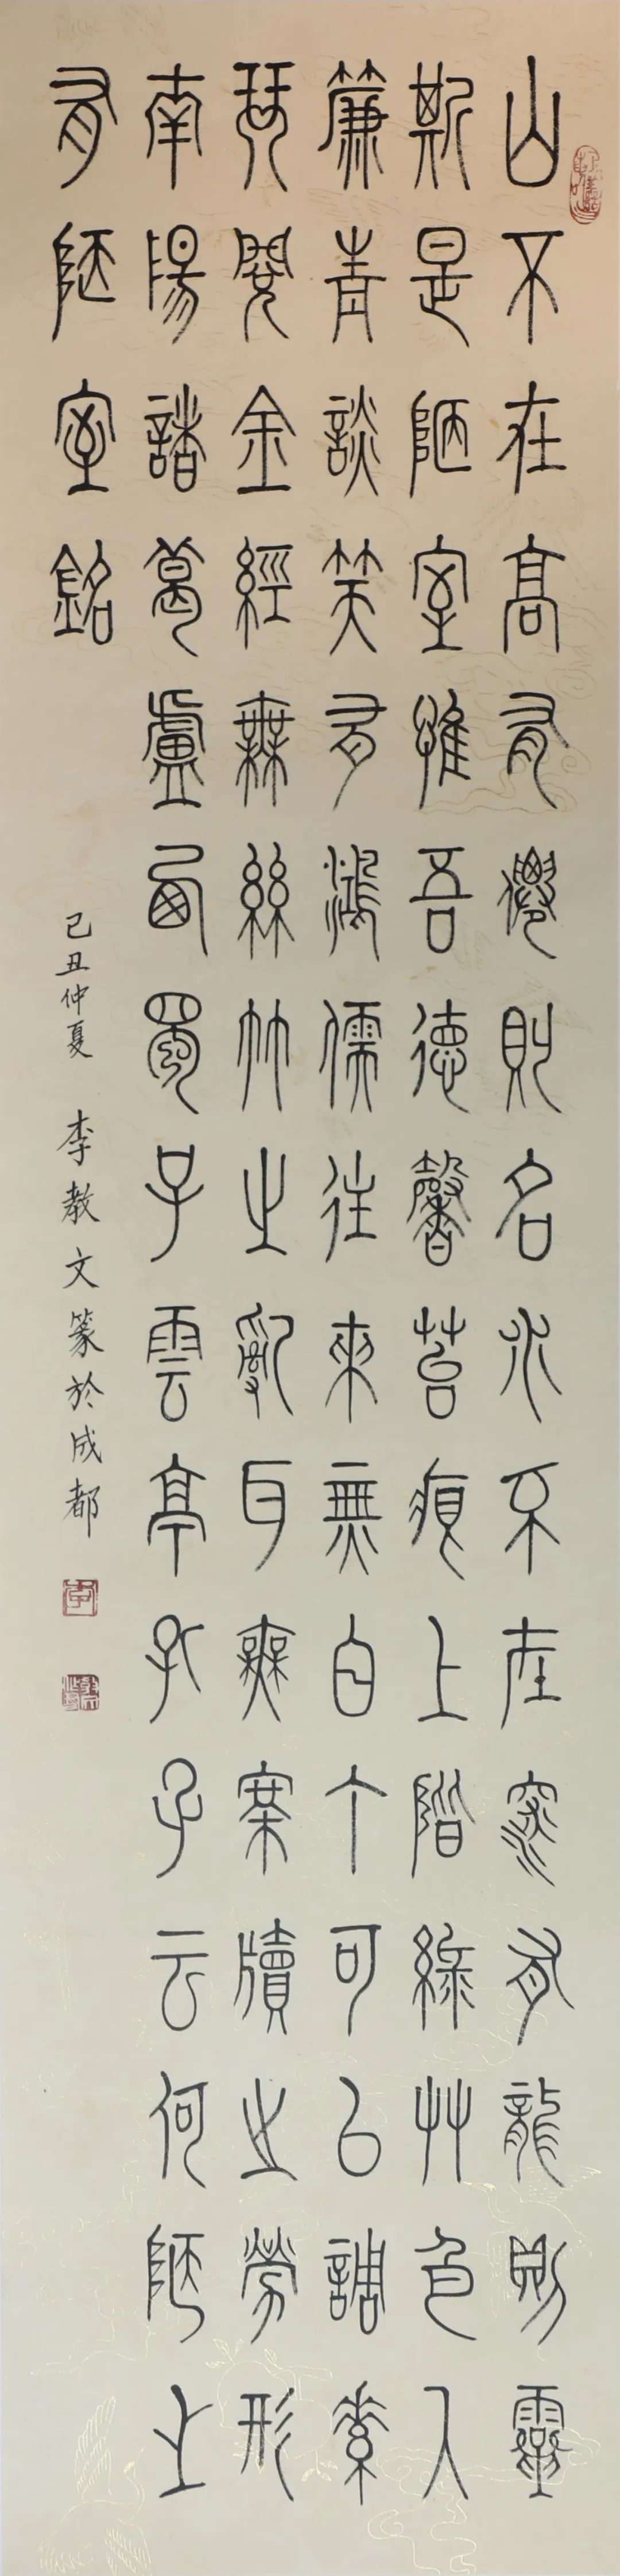 山不在高有僊則名水不在深有龍則靈
斯是陋室惟吾德馨苔痕上階綠艸色入
簾青談笑有鴻儒往來無白丁可以調素
琴閱金經無絲竹之亂耳無案牘之勞形
南陽諸葛盧西蜀子雲亭孔子云何陋之
有陋室銘
己丑仲夏 李教文篆於成都